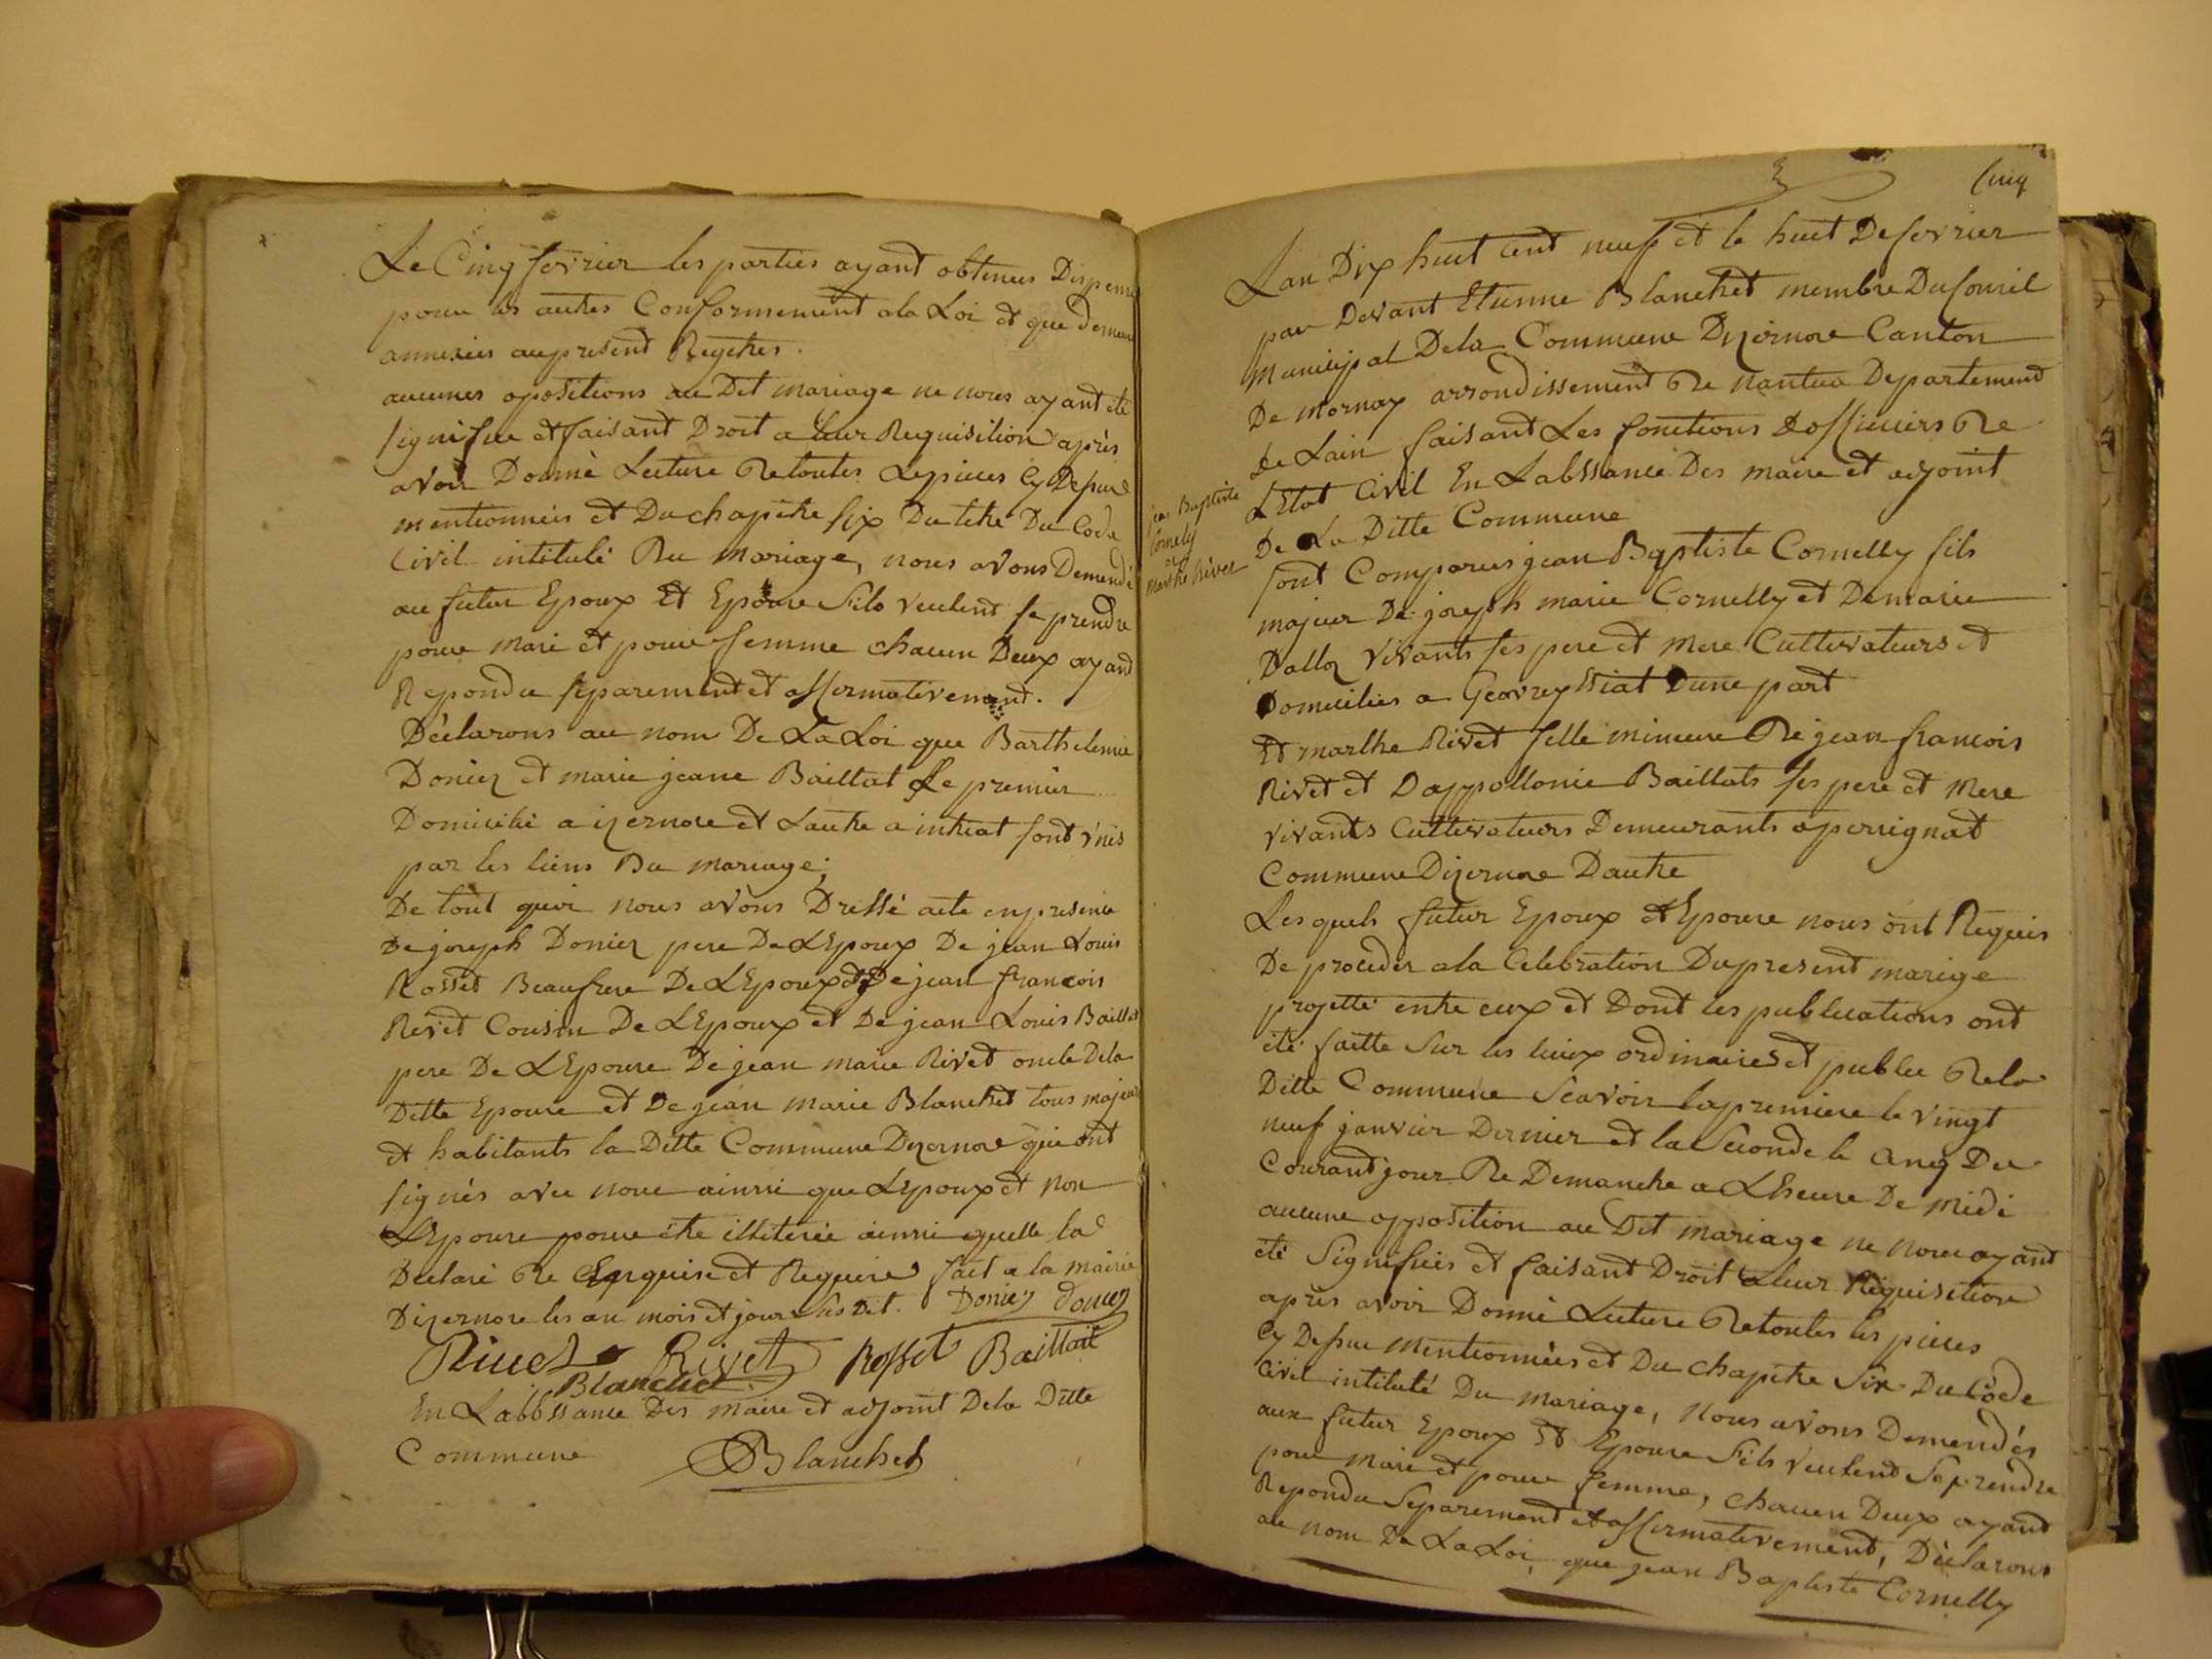 Le Cinq fevrier les parties ayant obtenus Dispense
pour les autres Conformement ala Loi et que demeure
annexées aupresent Regitres.
aucunes opositions au Dit mariage ne nous ayant ete
signifiée et faisant Droit a leur Requisition après
avoir Donné Lecture De toutes Les pieces Cy Dessus
mentionnées et Du chapitre six Du titre Du Code
Civil intitulé Du Mariage, nous avons Demendé
au futur Epoux Et Epouse Sils veulent se prendre
pour mari et pour femme chacun Deux ayant
Repondu separement et affirmativement.
Déclarons au nom De La Loi que Barthelemie
Donier et marie jeane Baillat Le premier
Domicilié a izernore et Lautre a intriat sont unis
par les liens Du mariage;
De tout quoi nous avons Dressé acte en presence
De joseph Donier pere De LEpoux De jean Louis
Rosset Beaufrere De LEpoux et De jean francois
Rivet Cousin De LEpoux et De jean Louis Baillat
pere De LEpouse De jean marie Rivet oncle Dela
Ditte Epouse et De jean marie Blanchet tous majeurs
et habitants la Ditte Commune Dizernore qui ont
signés avec nous ainssi que LEpoux et non
LEpouse pour étre illiterée ainssi quelle la
Déclaré De Enquise et Requise fait a la mairie
Dizernore les an mois et jour Sus Dit. Donier Donier
Rivet Rivet Rosset Baillat
Blanchet
En Labssance Des maire et adjoint Dela Ditte
Commune Blanchet
Cinq
Lan Dix huit cent neuf et le huit De fevrier
par Devant Etienne Blanchet membre Du Conseil
Municipal Dela Commune Dizernore Canton
De mornay arrondissement De nantua Departement
De Lain faisant Les fonctions Dofficiers De
LEtat Civil En Labssance Des maire et adjoint
De La Ditte Commune
jean Baptiste
Cornely
et
Marthe Rivet
sont Comparus jean Baptiste Cornelly fils
majeur De joseph marie Cornelly et De marie
Dalloz vivants ses pere et mere Cultivateurs et
Domiciliés a Geovreyssiat Dune part
Et marthe Rivet fille mineure De jean francois
Rivet et Dappollonie Baillats ses pere et Mere
vivants Cultivateurs Demeurants aperrignat
Commune Dizernore Dautre
Les quels futur Epoux et Epouse nous ont Requis
De proceder ala Celebration Dupresent marige
projetté entre eux et Dont les publications ont
été faitte Sur les lieux ordinaires et public Dela
Ditte Commune Scavoir lapremiere le vingt
neuf janvier Dernier et la Seconde le Cinq Du
Courant jour De Demanche a LHeure De midi
aucune opposition au Dit mariage ne nous ayant
été Signifiées et faisant Droit a leur Requisition
après avoir Donné Lecture De toutes les pieces
Cy Dessus Mentionnées et Du chapitre Six Du Code
Civil intitulé Du mariage, Nous avons Demendés
aux futur Epoux Et Epouse Sils veulent Se prendre
pour Mari et pour femme, chacun Deux ayant
Repondu Separement et affirmativement, Déclarons
au nom De La Loi, que jean Baptiste Cornelly